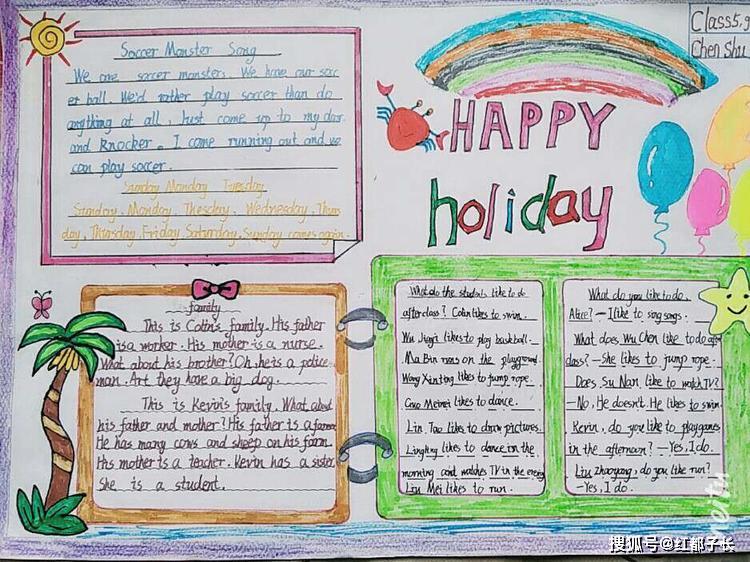 Class5.9
Chen Shu
Soccer Monster Song
We are soccer monsters. We have our socc
er ball. We'd rather play soccer than do
anything at all, Just come up to my door
and Knocker. I come running out and we
can play soccer.
Sunday Monday Tuesday
Sunday, Monday, Thesday, Wednesday, Thurs
day, Thursday, Friday Saturday, Sunday comes again.
HAPPY
holiday
family
This is Colin's family. His father
is a worker. His mother is a nurse.
What about his brother? Oh, he is a police
man. Art they have a big dog.
This is Kevin's family. What about
his father and mother? His father is a farmer
He has many cows and sheep on his farm.
His mother is a teacher. Kevin has a sister
She is a student.
What do the students like to do
afterclass? Colin likes to swim.
Wu Jingyi likes to play basketball.
Ma Bin runs on the playground.
Wang Xinting likes to jump rope.
Gao Meimei likes to dance.
Lin Tao likes to draw pictures.
Lingling likes to dance in the
morning and watches TV in the evening
Liu Mei likes to run.
What do you like to do,
Alice? — I like to sing songs.
What does Wu Chen like to do after
class? — She likes to jump rope.
Does Su Nan, like to watch TV?
—No, He doesn't. He likes to swim.
Kevin, do you like to play games
in the afternoon? — Yes, I do.
Liu Zhaoyang, do you like run?
—Yes, I do.
搜狐号@红都子长